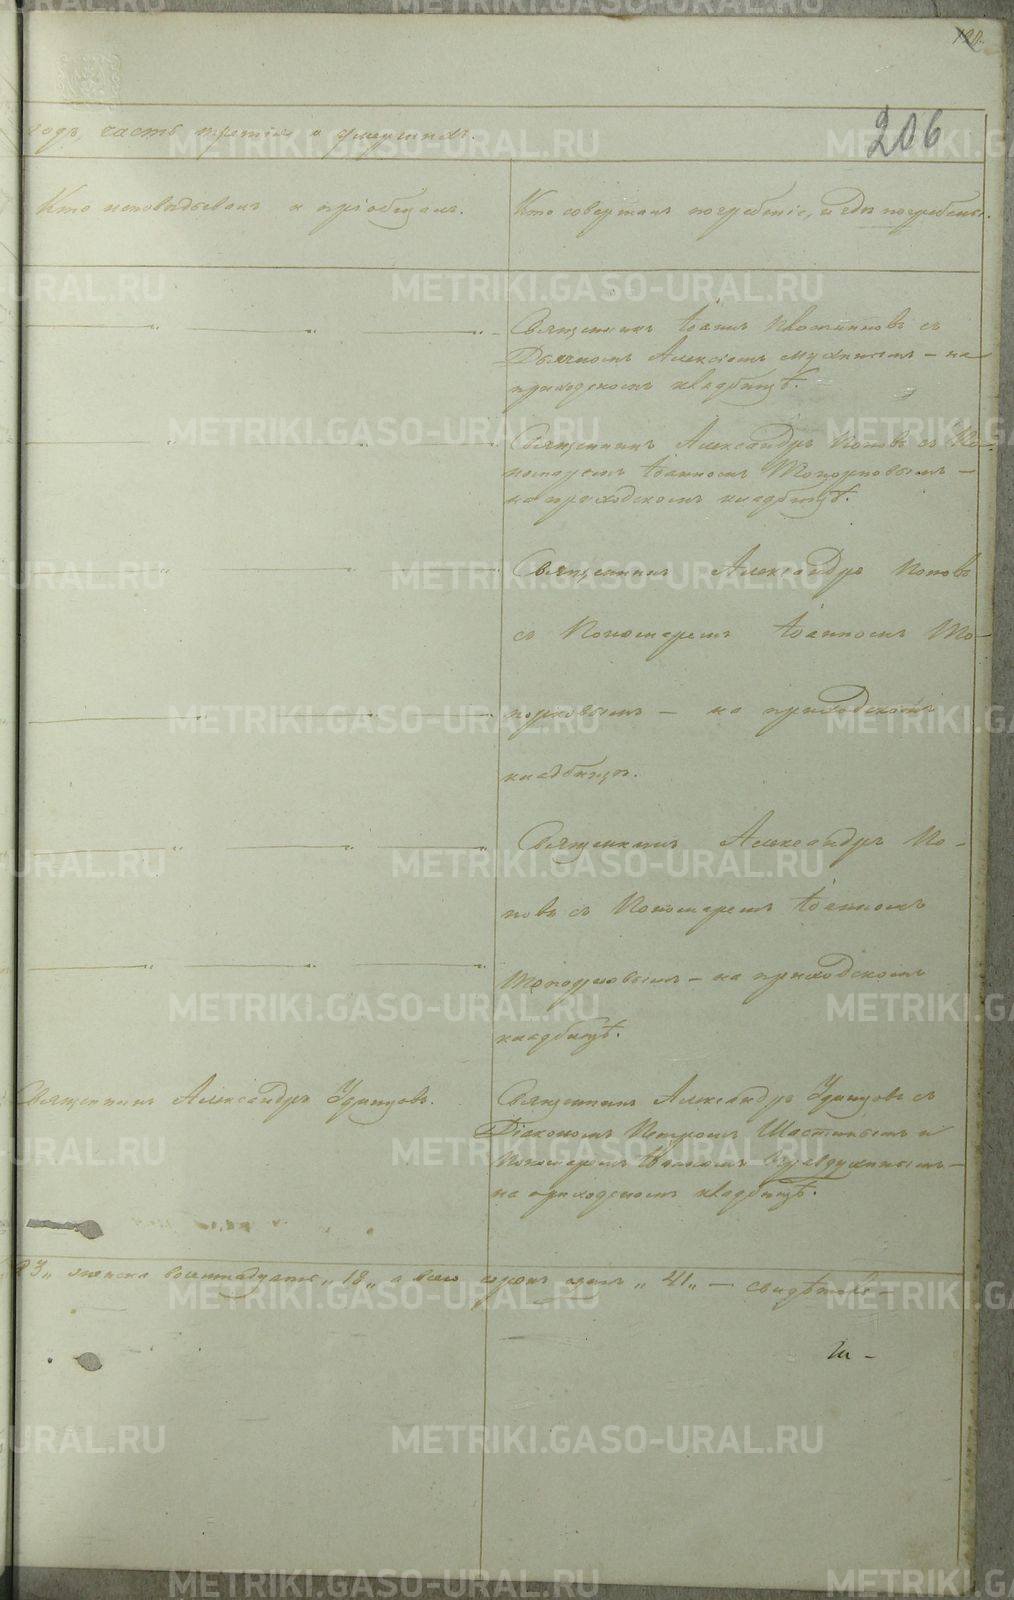 206
годъ, часть третія о умершихъ.
Кто исповѣдывалъ и пріобщалъ.
Кто совершалъ погребеніе, и гдѣ погребены.
Священникъ Іоаннъ съ
Дьячкомъ Алексѣемъ – на
приходскомъ кладбищѣ.
Священникъ Александръ Поповъ съ По-
номаремъ Іоанномъ Топорковымъ –
на приходскомъ кладбищѣ.
Священникъ Александръ Поповъ
съ Пономаремъ Іоанномъ То-
порковымъ – на приходскомъ
кладбищѣ.
Священникъ Александръ По-
повъ съ Пономаремъ Іоанномъ
Топорковымъ – на приходскомъ
кладбищѣ.
Священникъ Александръ Удинцовъ.
Священникъ Александръ Удинцовъ съ
Діакономъ Петромъ и
Пономаремъ Іоанномъ –
на приходскомъ кладбищѣ.
23„ женска восемнадцать „18„ а всего сорокъ одинъ „41„ – свидѣтель-
METRIKI.GASO-URAL.RU